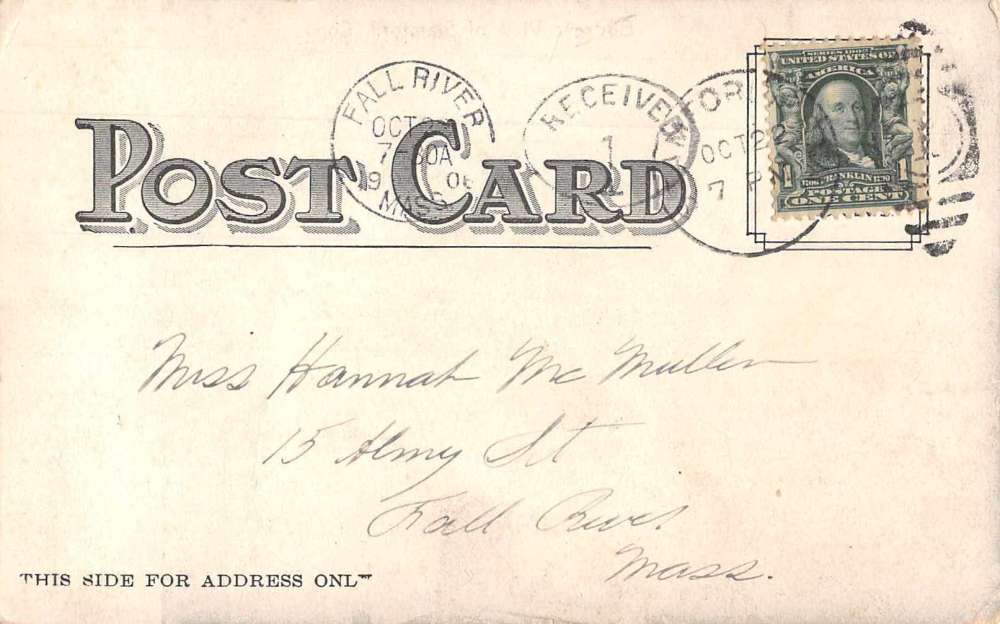 FALL RIVER
OCT
7 30A
19 06
MASS.
RECEIVED
1
OCT 22
7 PM
SERIES 1902
UNITED STATES OF
AMERICA
1
1
FRANKLIN
POSTAGE
ONE CENT
POST CARD
Miss Hannah Mc Mullen
15 Almy St
Fall River
Mass.
THIS SIDE FOR ADDRESS ONLY